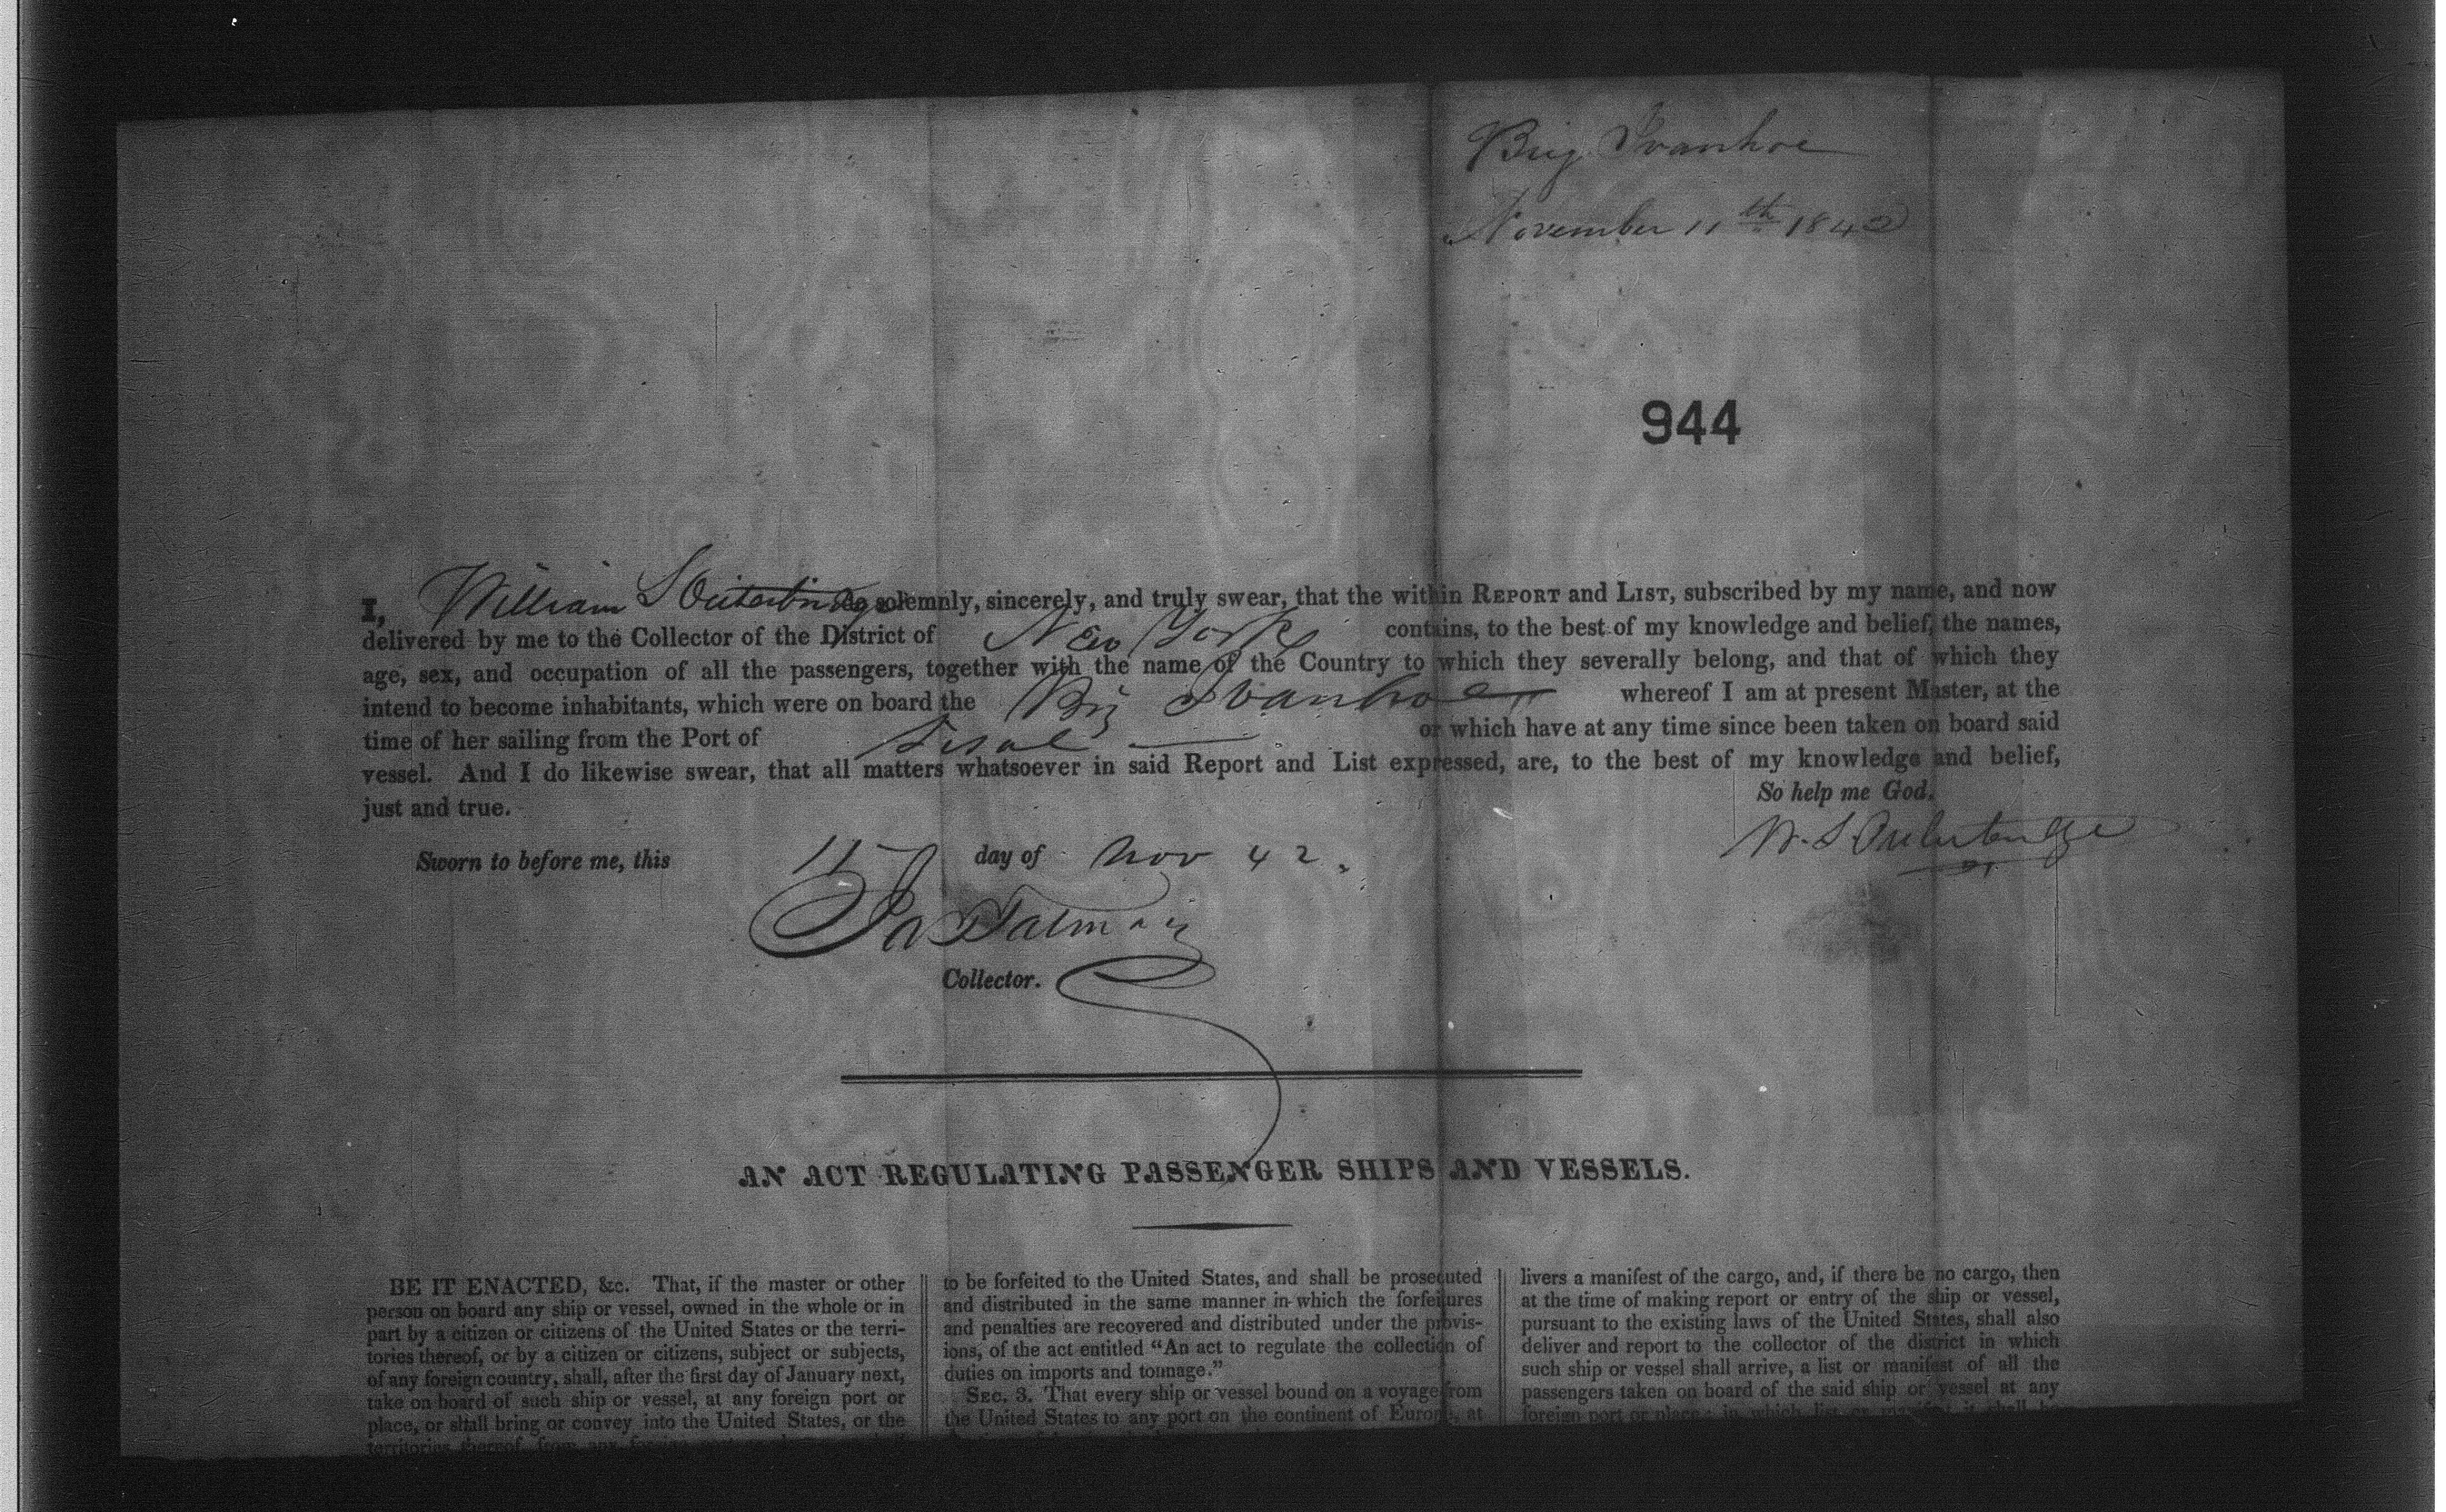 Brig Ivanhoe
November 11th 1842
944
I, William S Outerbridge do solemnly, sincerely, and truly swear, that the within REPORT and LIST, subscribed by my name, and now
delivered by me to the Collector of the District of New York contains, to the best of my knowledge and belief, the names,
age, sex, and occupation of all the passengers, together with the name of the Country to which they severally belong, and that of which they
intend to become inhabitants, which were on board the Brig Ivanhoe whereof I am at present Master, at the
time of her sailing from the Port of Sisal or which have at any time since been taken on board said
vessel. And I do likewise swear, that all matters whatsoever in said Report and List expressed, are, to the best of my knowledge and belief,
just and true.
So help me God.
W. S Outerbridge
Sworn to before me, this 11 day of Nov 42.
Collector.
AN ACT REGULATING PASSENGER SHIPS AND VESSELS.
BE IT ENACTED, &c. That, if the master or other
person on board any ship or vessel, owned in the whole or in
part by a citizen or citizens of the United States or the terri-
tories thereof, or by a citizen or citizens, subject or subjects,
of any foreign country, shall, after the first day of January next,
take on board of such ship or vessel, at any foreign port or
place, or shall bring or convey into the United States, or the
territories thereof, from any foreign
to be forfeited to the United States, and shall be prosecuted
and distributed in the same manner in which the forfeitures
and penalties are recovered and distributed under the provis-
ions, of the act entitled “An act to regulate the collection of
duties on imports and tonnage.”
SEC. 3. That every ship or vessel bound on a voyage from
the United States to any port on the continent of Europe, at
livers a manifest of the cargo, and, if there be no cargo, then
at the time of making report or entry of the ship or vessel,
pursuant to the existing laws of the United States, shall also
deliver and report to the collector of the district in which
such ship or vessel shall arrive, a list or manifest of all the
passengers taken on board of the said ship or vessel at any
foreign port or place; in which list or manifest it shall be